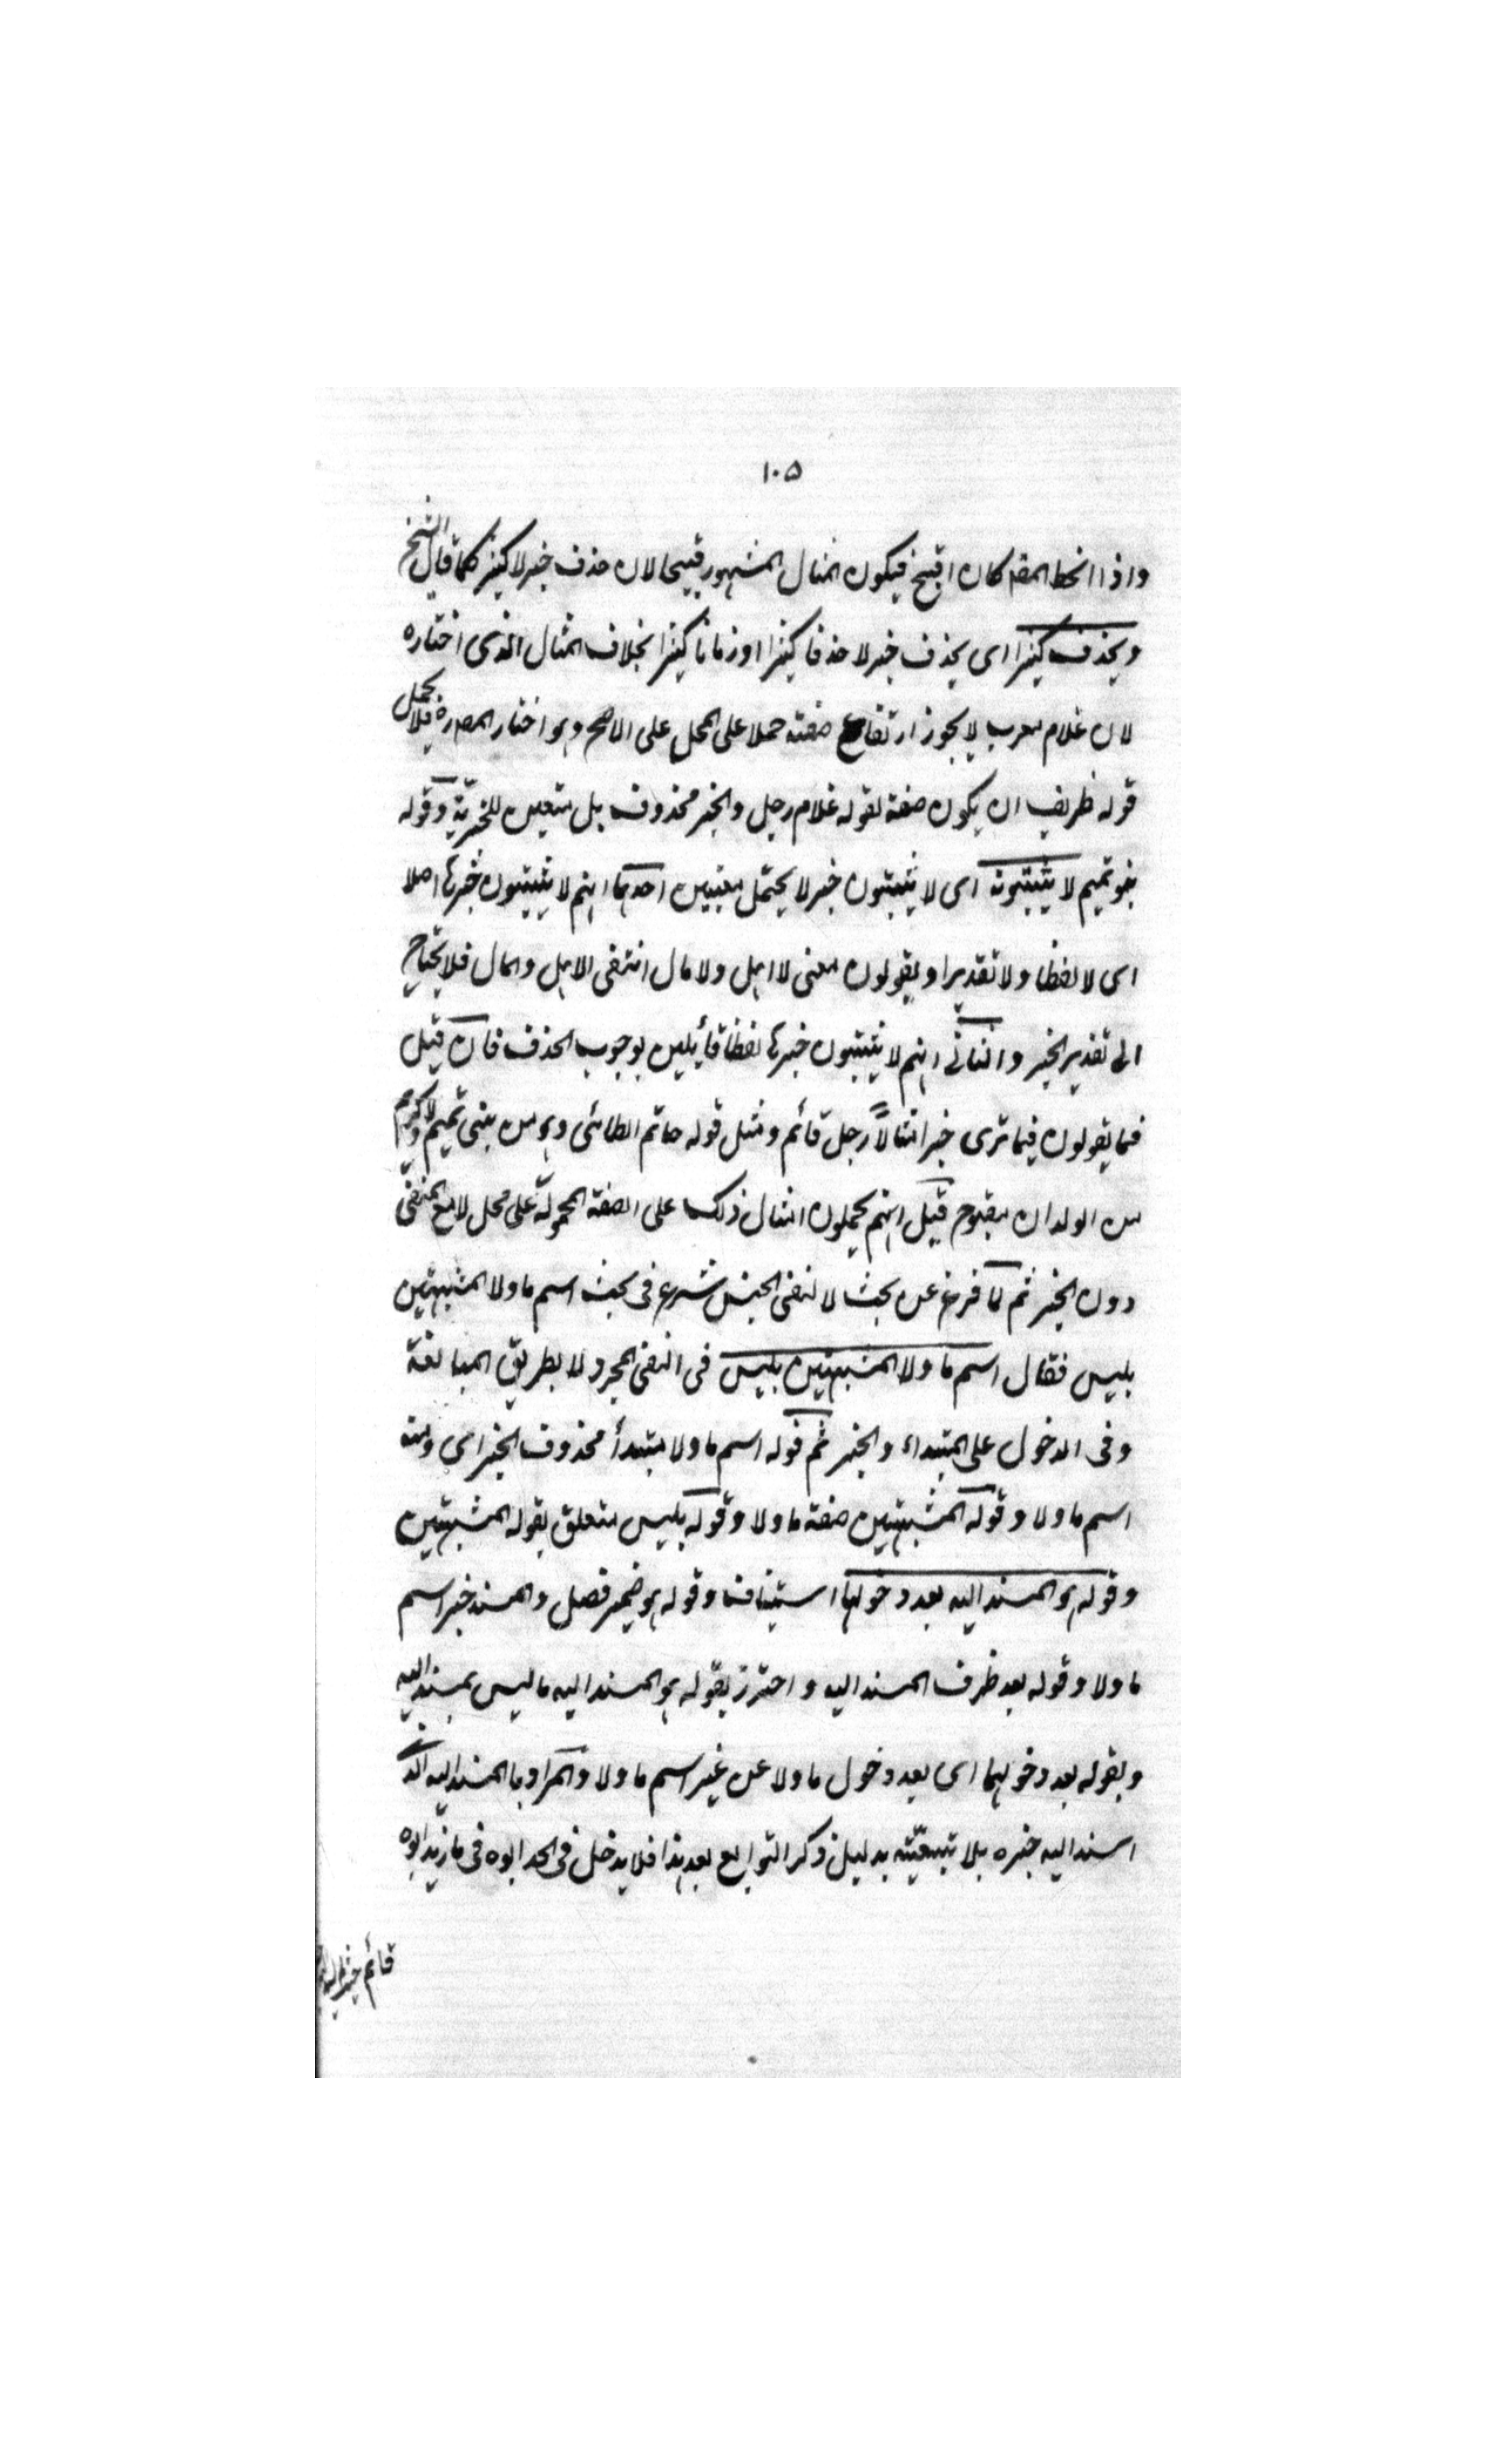 ١٠٥
واذا انحط المقدم كان اقبح فيكون المثال المشهور قبيحا لان حذف خبر لا كثير كما قال الشيخ
ويحذف كثيرا اى يحذف خبر لا حذفا كثيرا او زمانا كثيرا بخلاف المثال الذى اختاره
لان غلام معرب لا يجوز ارتفاع صفته حملا على المحل على الاصح وهو اختيار المص ره فلا يحتمل
قوله ظريف ان يكون صفة لقوله غلام رجل والخبر محذوف بل يتعين للخبرية وقوله
بنو تميم لا يثبتونه اى لا يثبتون خبر لا يحتمل معنيين احدهما انهم لا يثبتون خبرها اصلا
اى لا لفظا ولا تقديرا ويقولون معنى لا اهل ولا مال انتفى الاهل والمال فلا يحتاج
الى تقدير الخبر والثانى انهم لا يثبتون خبرها لفظا قائلين بوجوب الحذف فان قيل
فما يقولون فيما ترى خبرا مثل لا رجل قائم ومثل قوله حاتم الطائى وهو من بنى تميم ولا كريم
من الولدان مصبوح قيل انهم يحملون امثال ذلك على الصفة المحمولة على محل لا مع المنفى
دون الخبر ثم لما فرغ عن بحث لا لنفى الجنس شرع فى بحث اسم ما ولا المشبهتين
بليس فقال اسم ما ولا المشبهتين بليس فى النفى المجرد لا بطريق المبالغة
وفى الدخول على المبتداء والخبر ثم قوله اسم ما ولا مبتدأ محذوف الخبر اى ومنه
اسم ما ولا وقوله المشبهتين صفة ما ولا وقوله بليس متعلق بقوله المشبهتين
وقوله هو المسند اليه بعد دخولهما استينافا وقوله هو ضمير فصل والمسند خبر اسم
ما ولا وقوله بعد ظرف المسند اليه واحترز بقوله هو المسند اليه ما ليس بمسند اليه
وبقوله بعد دخولهما اى بعد دخول ما ولا عن غير اسم ما ولا والمراد بالمسند اليه الذى
اسند اليه خبره بلا تبعيته بدليل ذكر التوابع بعد هذا فلا يدخل فى الحد ابوه فى ما زيد ابوه
قائم